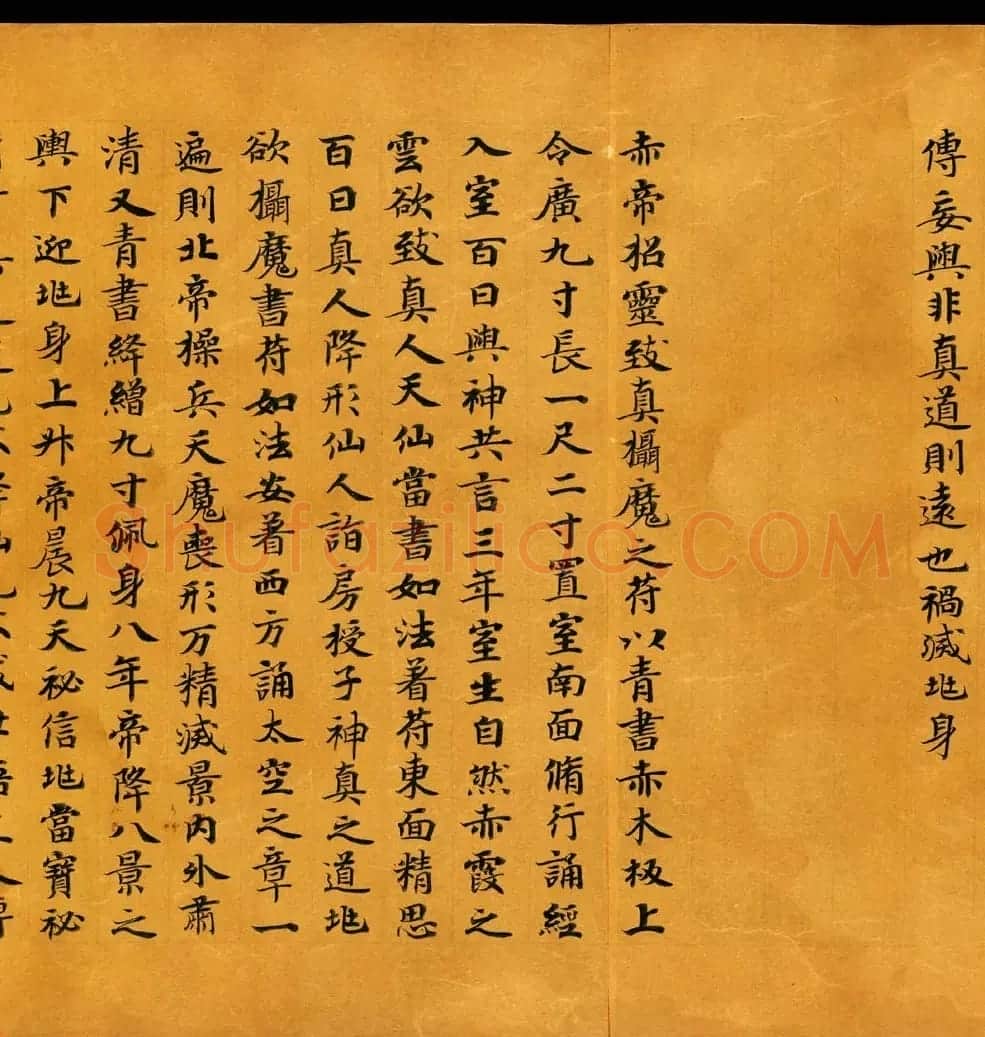 傳妄與非真道則遠也禍滅兆身
赤帝招靈致真攝魔之符以青書赤木板上
令廣九寸長一尺二寸置室南面脩行誦經
入室百日與神共言三年室生自然赤霞之
雲欲致真人天仙當書如法著符東面精思
百日真人降形仙人詣房授子神真之道兆
欲攝魔書符如法安著西方誦太空之章一
遍則北帝操兵天魔喪形万精滅景内外肅
清又青書絳繒九寸佩身八年帝降八景之
輿下迎兆身上升帝晨九天祕信兆當寶祕
Shufaziliao.COM